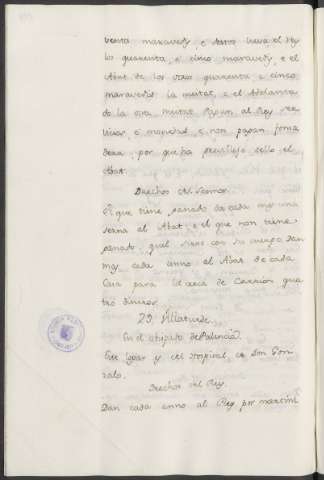 venta maravedis, e destos lieva el Rey
los quarenta, e cinco maravedis, e el
Abat de los otros quarenta e cinco
maravedis la meitat, e el Adelanta
do la otra meitat. Pagan al Rey ser
vicios, e monedas e non pagan fonsa
dera, por que ha previllejo dello el
Abat.
Derechos del Sennor.
El que tiene ganado da cada mes una
serna al Abat, e el que non tiene
ganado, quel sirva con su cuerpo. Dan
mas cada anno al Abat de cada
Casa para la de Carrion qua
tro dineros.
29. Villaturde.
En el obispado de Palencia.
Este logar es del ospital de Don Gon
zalo.
Derechos del Rey.
Dan cada anno al Rey por martini